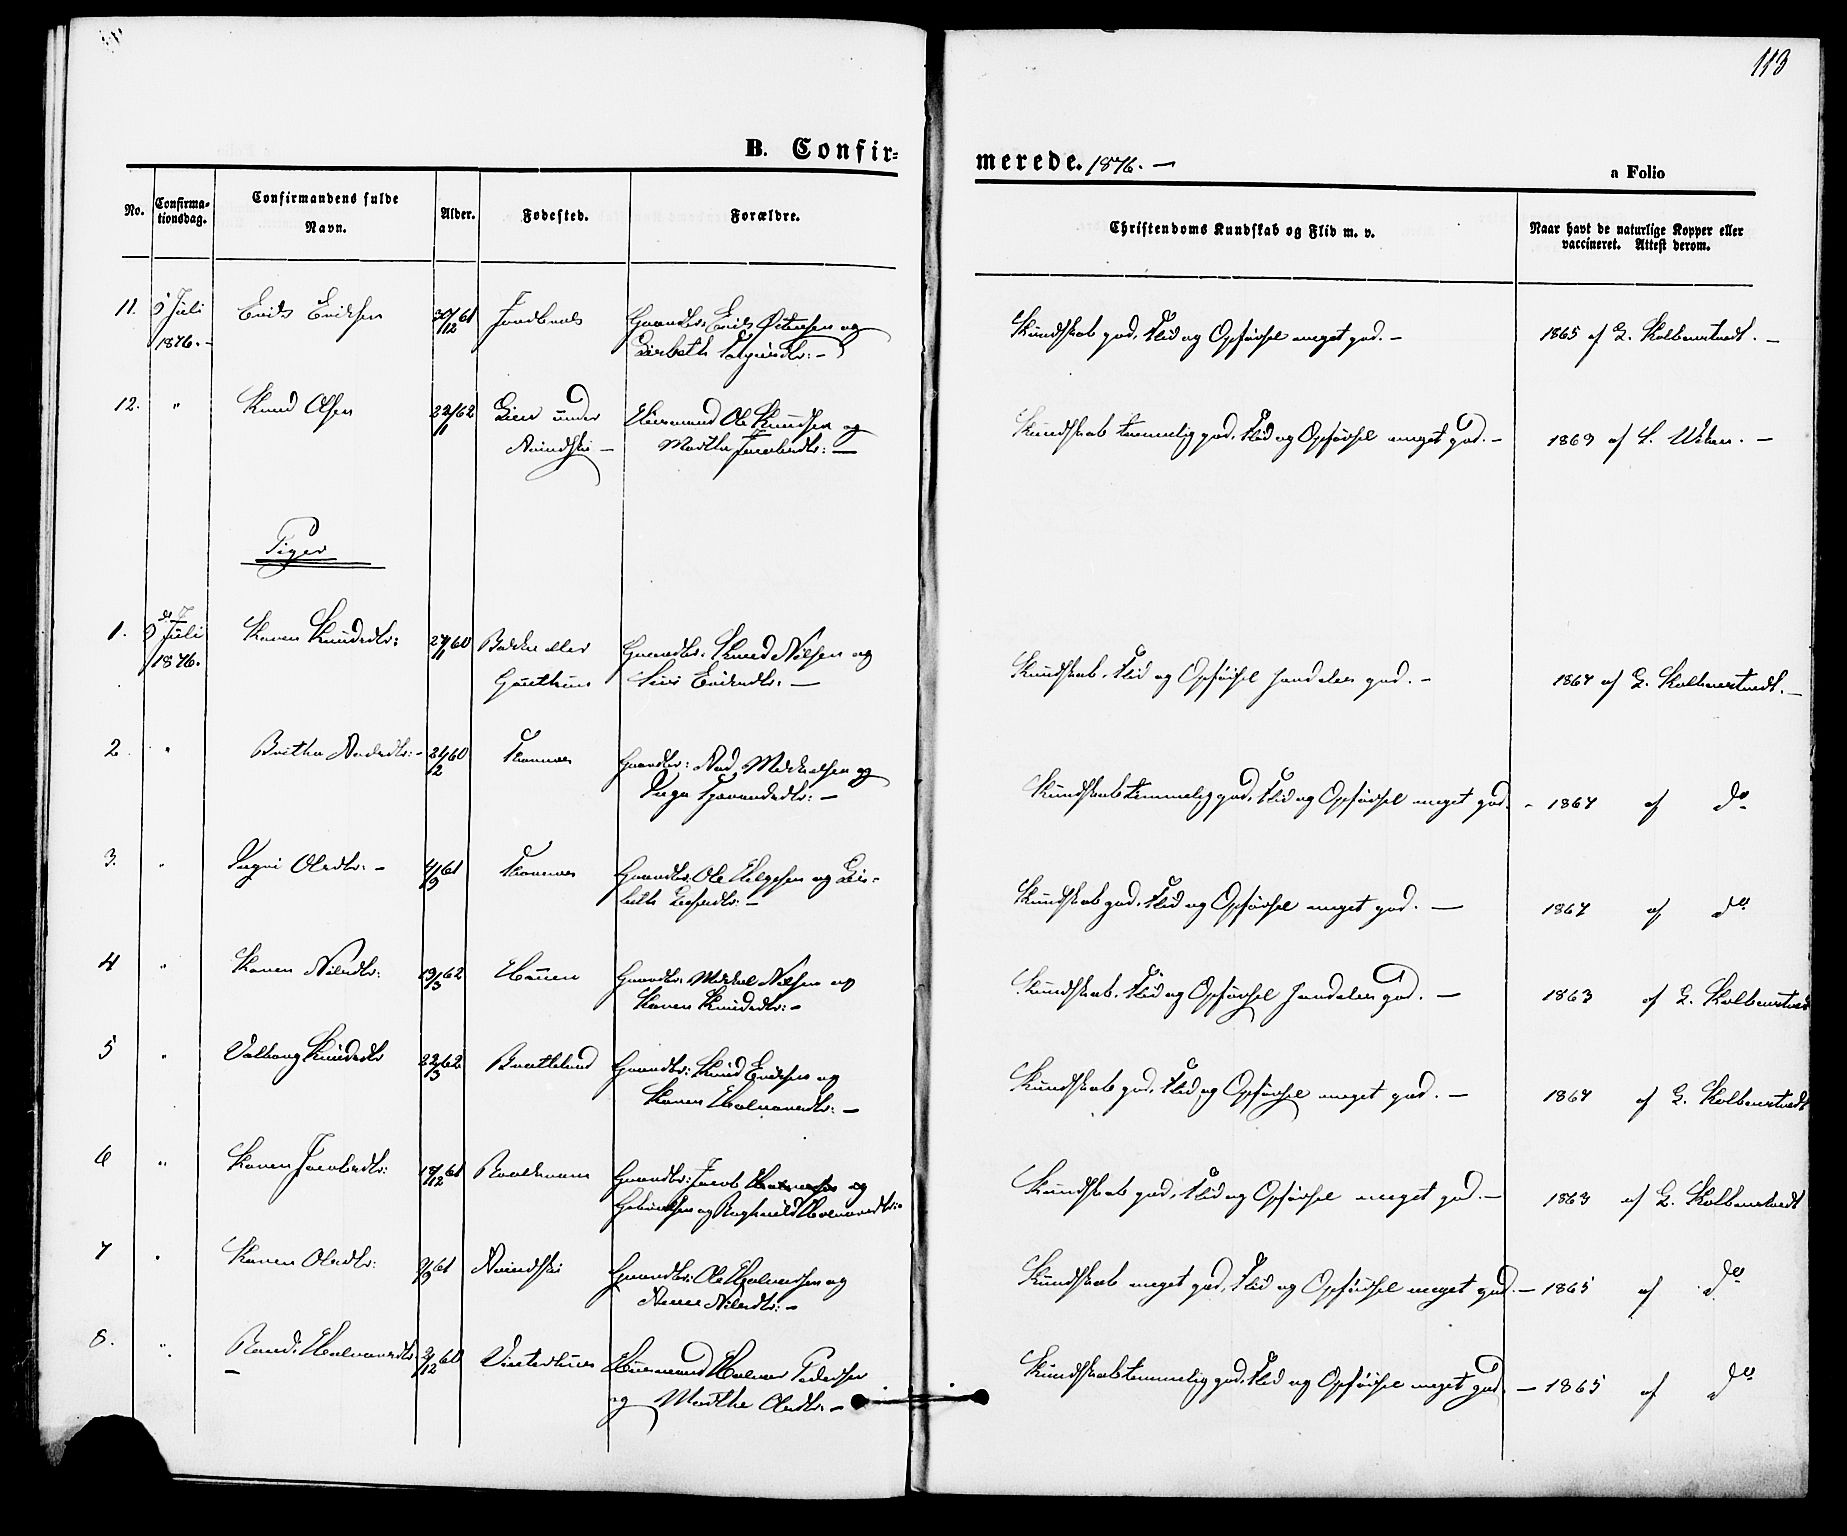 113
B. Confirmerede. 1876. —
a Folio
No.
Confirmationsdag.
Confirmandens fulde Navn.
Alder.
Fødested.
Forældre.
Christendoms Kundskab og Flid m. v.
Naar havt de naturlige Kopper eller vaccineret. Attest derom.
11. Juli 1876. — Erik Eriksen 30/12 61 Gaardbr: Erik Østensen og
Lisbeth —
Kundskab god, Flid og Opførsel meget god. — 1865 af G. Kolbenstvedt. —
12. " Knud Olsen 22/1 62 Lien under Huusmand Ole Knudsen og
Nørindsli — Marthe Jacobsdtr: —
Kundskab temmelig god, Flid og Opførsel meget god. — 1863 af —
Piger
1. Juli 1876. Karen Knudsdtr: 27/1 60 Bakke eller Gaardbr: Knud Nilsen og
Siri Eriksdtr: —
Kundskab, Flid og Opførsel særdeles god. — 1867 af G. Kolbenstvedt. —
2. " Britha Aadsdtr: — 21/2 60 Gaardbr: Aad Mikkelsen og
Inga —
Kundskab temmelig god, Flid og Opførsel meget god. — 1867 af do
3. " Ingri Olsdtr: — 4/9 61 Gaardbr: Ole Helgesen og Lis-
beth —
Kundskab god, Flid og Opførsel meget god. — 1867 af do
4 " Karen Nilsdtr: 19/3 62 Gaardbr: Mikkel Nilsen og
Karen Knudsdtr: —
Kundskab, Flid og Opførsel særdeles god. — 1863 af G. Kolbenstvedt
5 " Valborg Knudsdtr 22/3 62 Brattelund Gaardbr: Knud Eriksen og
Karen Halvorsdtr: —
Kundskab god, Flid og Opførsel meget god. — 1867 af G. Kolbenstvedt
6 " Karen Jacobsdtr: 18/12 61 Gaardbr: Jacob
og Ragnhild Halvorsdtr:
Kundskab god, Flid og Opførsel meget god. — 1863 af G. Kolbenstvedt
7 " Karen Olsdtr: 61 Gaardbr: Ole Halvorsen og
Anne Nilsdtr: —
Kundskab meget god, Flid og Opførsel meget god. — 1865 af do
8. " Randi Halvorsdtr — 2/12 60 Vinterhuus Huusmand Halvor Pedersen
og Marthe Olsdtr: —
Kundskab temmelig god, Flid og Opførsel meget god. — 1865 af do